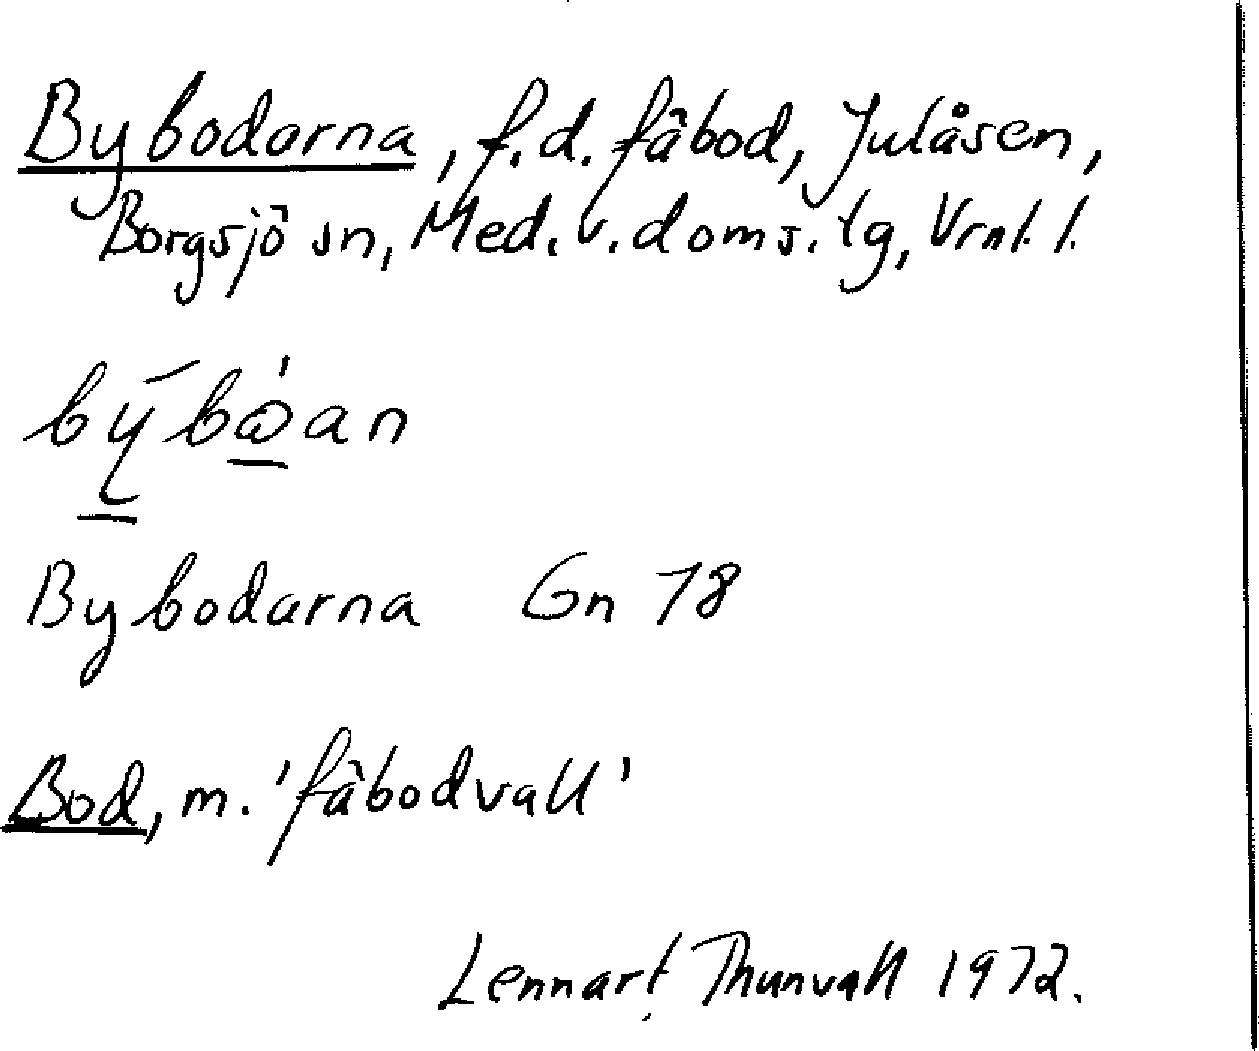 Bybodarna, f.d. fäbod, Julåsen,
Borgsjö sn, Med. v. doms. tg, Vrnl. l.
Bybodarna Gn 78
Bod, m. 'fäbodvall'
Lennart Thunvall 1972.